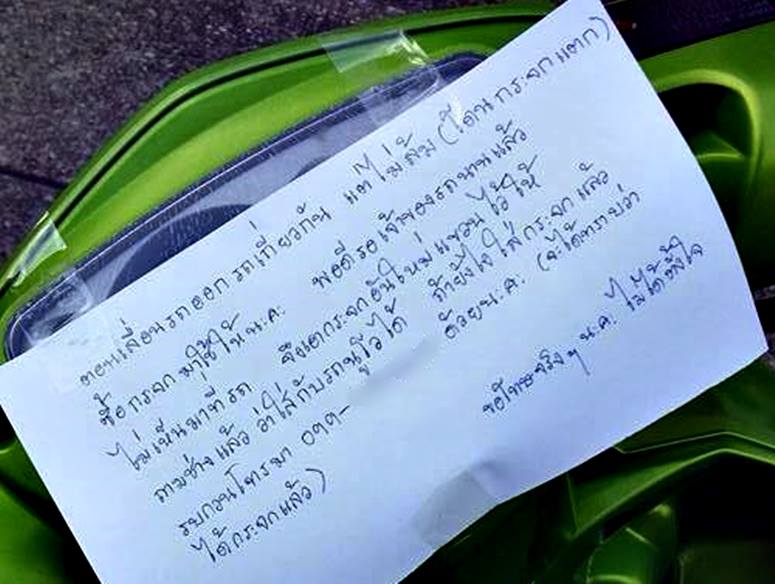 ตอนเลื่อนรถออก รถเกี่ยวกัน แต่ไม่ล้ม (โดนกระจกแตก)
ซื้อกระจกมาใช้ให้นะคะ พอดีรอเจ้าของรถนานแล้ว
ไม่เห็นมาที่รถ จึงเอากระจกอันใหม่แขวนไว้ให้
ถามช่างแล้ว ว่าใส่กับรถหนูได้ ถ้ายังไงใส่กระจกแล้ว
รบกวนโทรมา 099- ด้วยนะคะ (จะได้ทราบว่า
ได้กระจกแล้ว)
ขอโทษจริงๆ นะคะ ไม่ได้ตั้งใจ